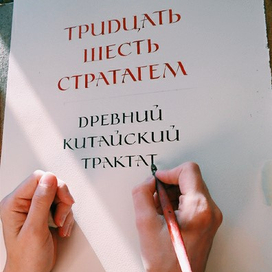 ТРИДЦАТЬ
ШЕСТЬ
СТРАТАГЕМ
ДРЕВНИЙ
КИТАЙСКИЙ
ТРАКТАТ